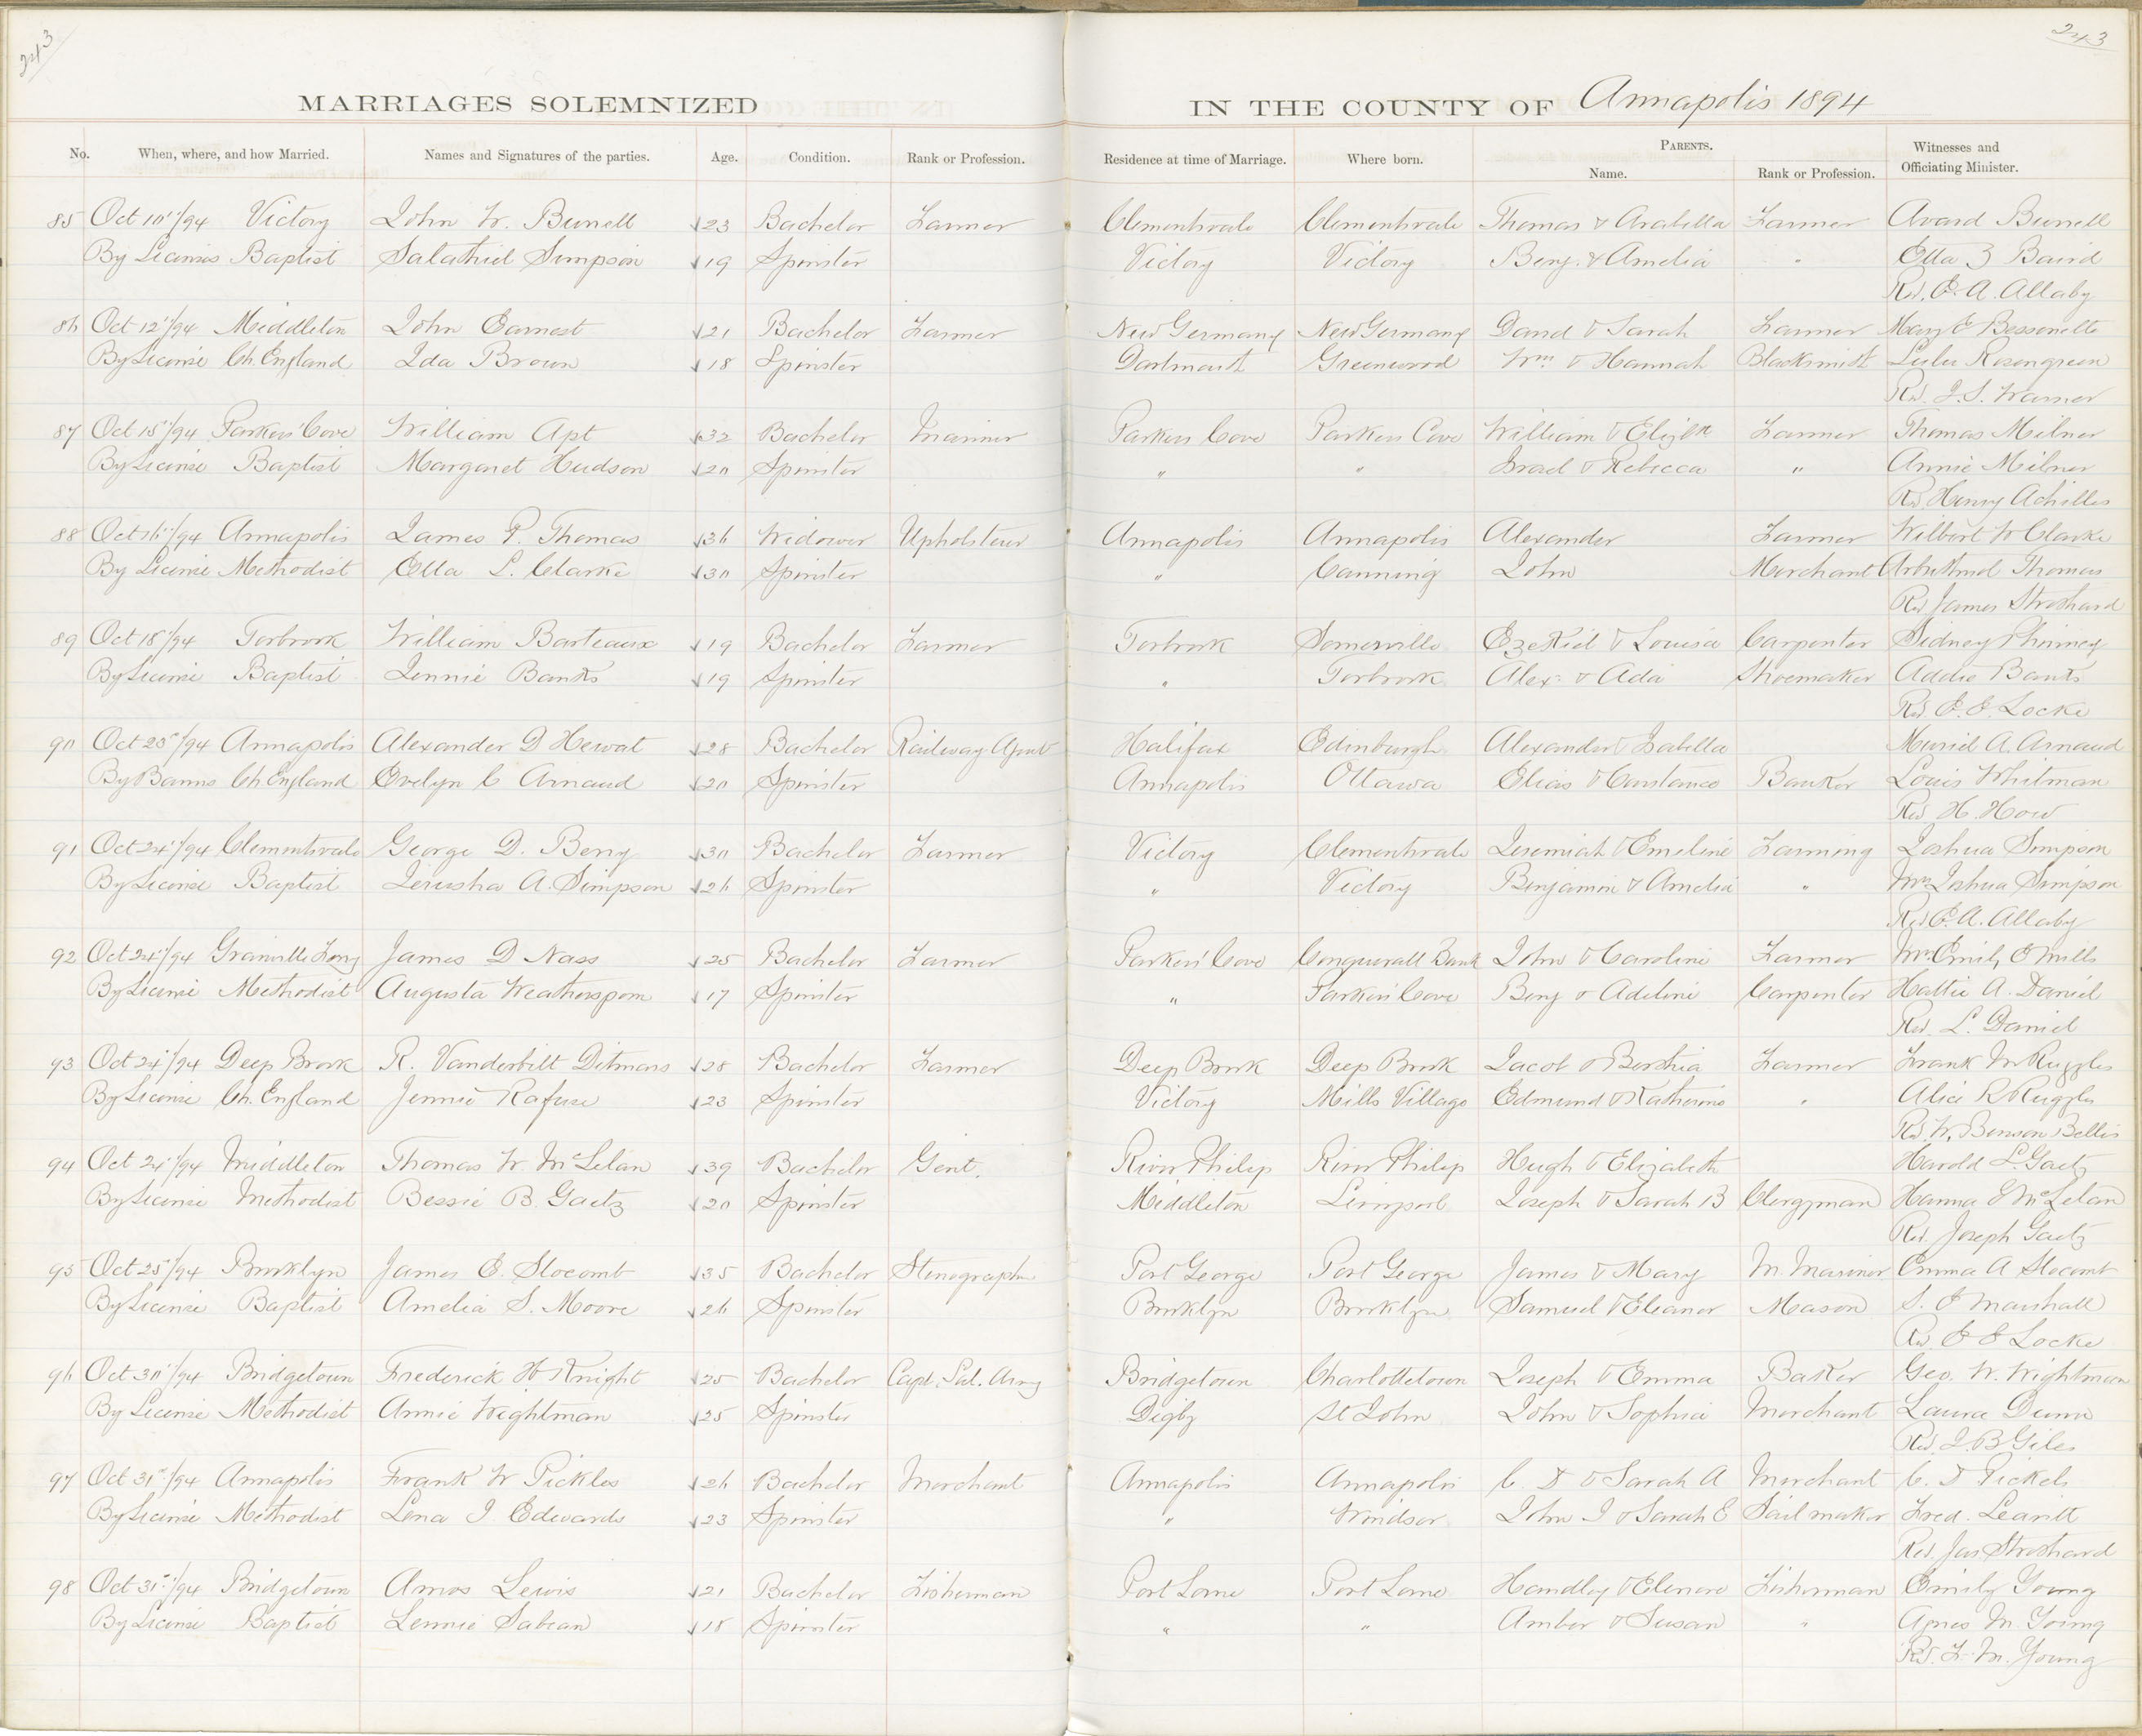 243
243
MARRIAGES SOLEMNIZED IN THE COUNTY OF Annapolis 1894
No. When, where, and how Married. Names and Signatures of the parties. Age. Condition. Rank or Profession. Residence at time of Marriage. Where born. PARENTS. Witnesses and
Name. Rank or Profession. Officiating Minister.
85 Oct 10"/94 Victory John W. Burrell 23 Bachelor Farmer Clementsvale Clementsvale Thomas & Arabella Farmer Avard Burrell
By License Baptist Salathiel Simpson 19 Spinster Victory Victory Benj. & Amelia " Etta Z Baird
Rev. E. A. Allaby
86 Oct 12"/94 Middleton John Earnest 21 Bachelor Farmer New Germany New Germany David & Sarah Farmer Mary E Bessonette
By License Ch. England Ida Brown 18 Spinster Dartmouth Greenwood Wm & Hannah Blacksmith Lulu Rosengreen
Rev. J. S. Warner
87 Oct 15"/94 Parkers' Cove William Apt 32 Bachelor Mariner Parkers Cove Parkers Cove William & Elizth Farmer Thomas Milner
By License Baptist Margaret Hudson 20 Spinster " " Israel & Rebecca " Annie Milner
Rev Henry Achilles
88 Oct 16"/94 Annapolis James P. Thomas 36 Widower Upholsterer Annapolis Annapolis Alexander Farmer Wilbert W Clarke
By License Methodist Etta L. Clarke 30 Spinster " Canning John Merchant Thomas
Rev James Strothard
89 Oct 18"/94 Torbrook William Barteaux 19 Bachelor Farmer Torbrook Somerville Ezekiel & Louisa Carpenter Sidney Phinney
By License Baptist Jennie Banks 19 Spinster " Torbrook Alex. & Ada Shoemaker Addie Banks
Rev E. E. Locke
90 Oct 23"/94 Annapolis Alexander D Hewat 28 Bachelor Railway Agent Halifax Edinburgh Alexander & Isabella Muriel A. Arnaud
By Banns Ch England Evelyn C Arnaud 20 Spinster Annapolis Ottawa Elias & Constance Banker Louis Whitman
Rev H. How
91 Oct 24"/94 Clementsvale George D. Berry 30 Bachelor Farmer Victory Clementsvale Jeremiah & Emeline Farming Joshua Simpson
By License Baptist Jerusha A. Simpson 26 Spinster " Victory Benjamin & Amelia " Mrs Joshua Simpson
Rev E. A. Allaby
92 Oct 24"/94 Granville Ferry James D Nass 25 Bachelor Farmer Parkers' Cove Conquerall Bank John & Caroline Farmer Mrs Emily E Mills
By License Methodist Augusta Weatherspoon 17 Spinster " Parkers' Cove Benj & Adeline Carpenter Hattie A. Daniel
Rev. L. Daniel
93 Oct 24"/94 Deep Brook R. Vanderbilt Ditmars 28 Bachelor Farmer Deep Brook Deep Brook Jacob & Berthia Farmer Frank M Ruggles
By License Ch. England Jennie Rafuse 23 Spinster Victory Mills Village Edmund & Katherine " Alice R Ruggles
Rev W. Benson Bellis
94 Oct 24"/94 Middleton Thomas W. McLelan 39 Bachelor Gent. River Philip River Philip Hugh & Elizabeth Harold L. Gaetz
By License Methodist Bessie B. Gaetz 20 Spinster Middleton Liverpool Joseph & Sarah B Clergyman Hanna E McLelan
Rev. Joseph Gaetz
95 Oct 25"/94 Brooklyn James E. Slocomb 35 Bachelor Stenographer Port George Port George James & Mary M. Mariner Emma A Slocomb
By License Baptist Amelia S. Moore 26 Spinster Brooklyn Brooklyn Samuel & Eleanor Mason S. E Marshall
Rev E E Locke
96 Oct 30"/94 Bridgetown Frederick H Knight 25 Bachelor Capt. Sal. Army Bridgetown Charlottetown Joseph & Emma Baker Geo. W. Wightman
By License Methodist Annie Wightman 25 Spinster Digby St John John & Sophia Merchant Laura Dunn
Rev. J. B Giles
97 Oct 31"/94 Annapolis Frank W Pickles 26 Bachelor Merchant Annapolis Annapolis C. D & Sarah A Merchant C. D Pickels
By License Methodist Lena I. Edwards 23 Spinster " Windsor John I & Sarah E Sail maker Fred. Leavitt
Rev. Jas Strothard
98 Oct 31"/94 Bridgetown Amos Lewis 21 Bachelor Fisherman Port Lorne Port Lorne Handley & Elenore Fisherman Emily Young
By License Baptist Lennie Sabean 18 Spinster " " Amber & Susan " Agnes M. Young
Rev. F. M. Young